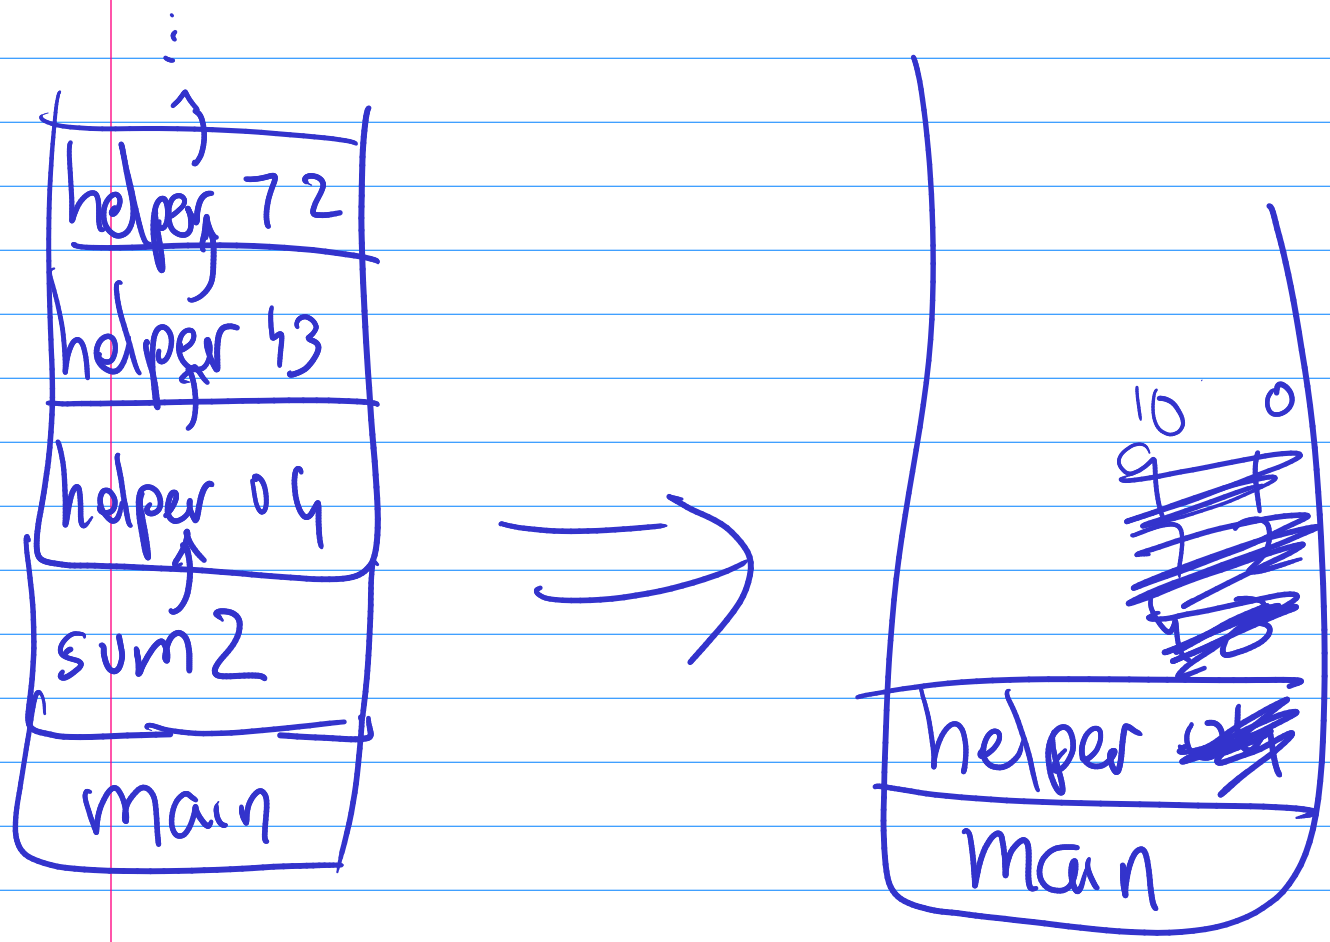 helper 72
helper 43
helper 04
sum2
main
10 0
helper
main